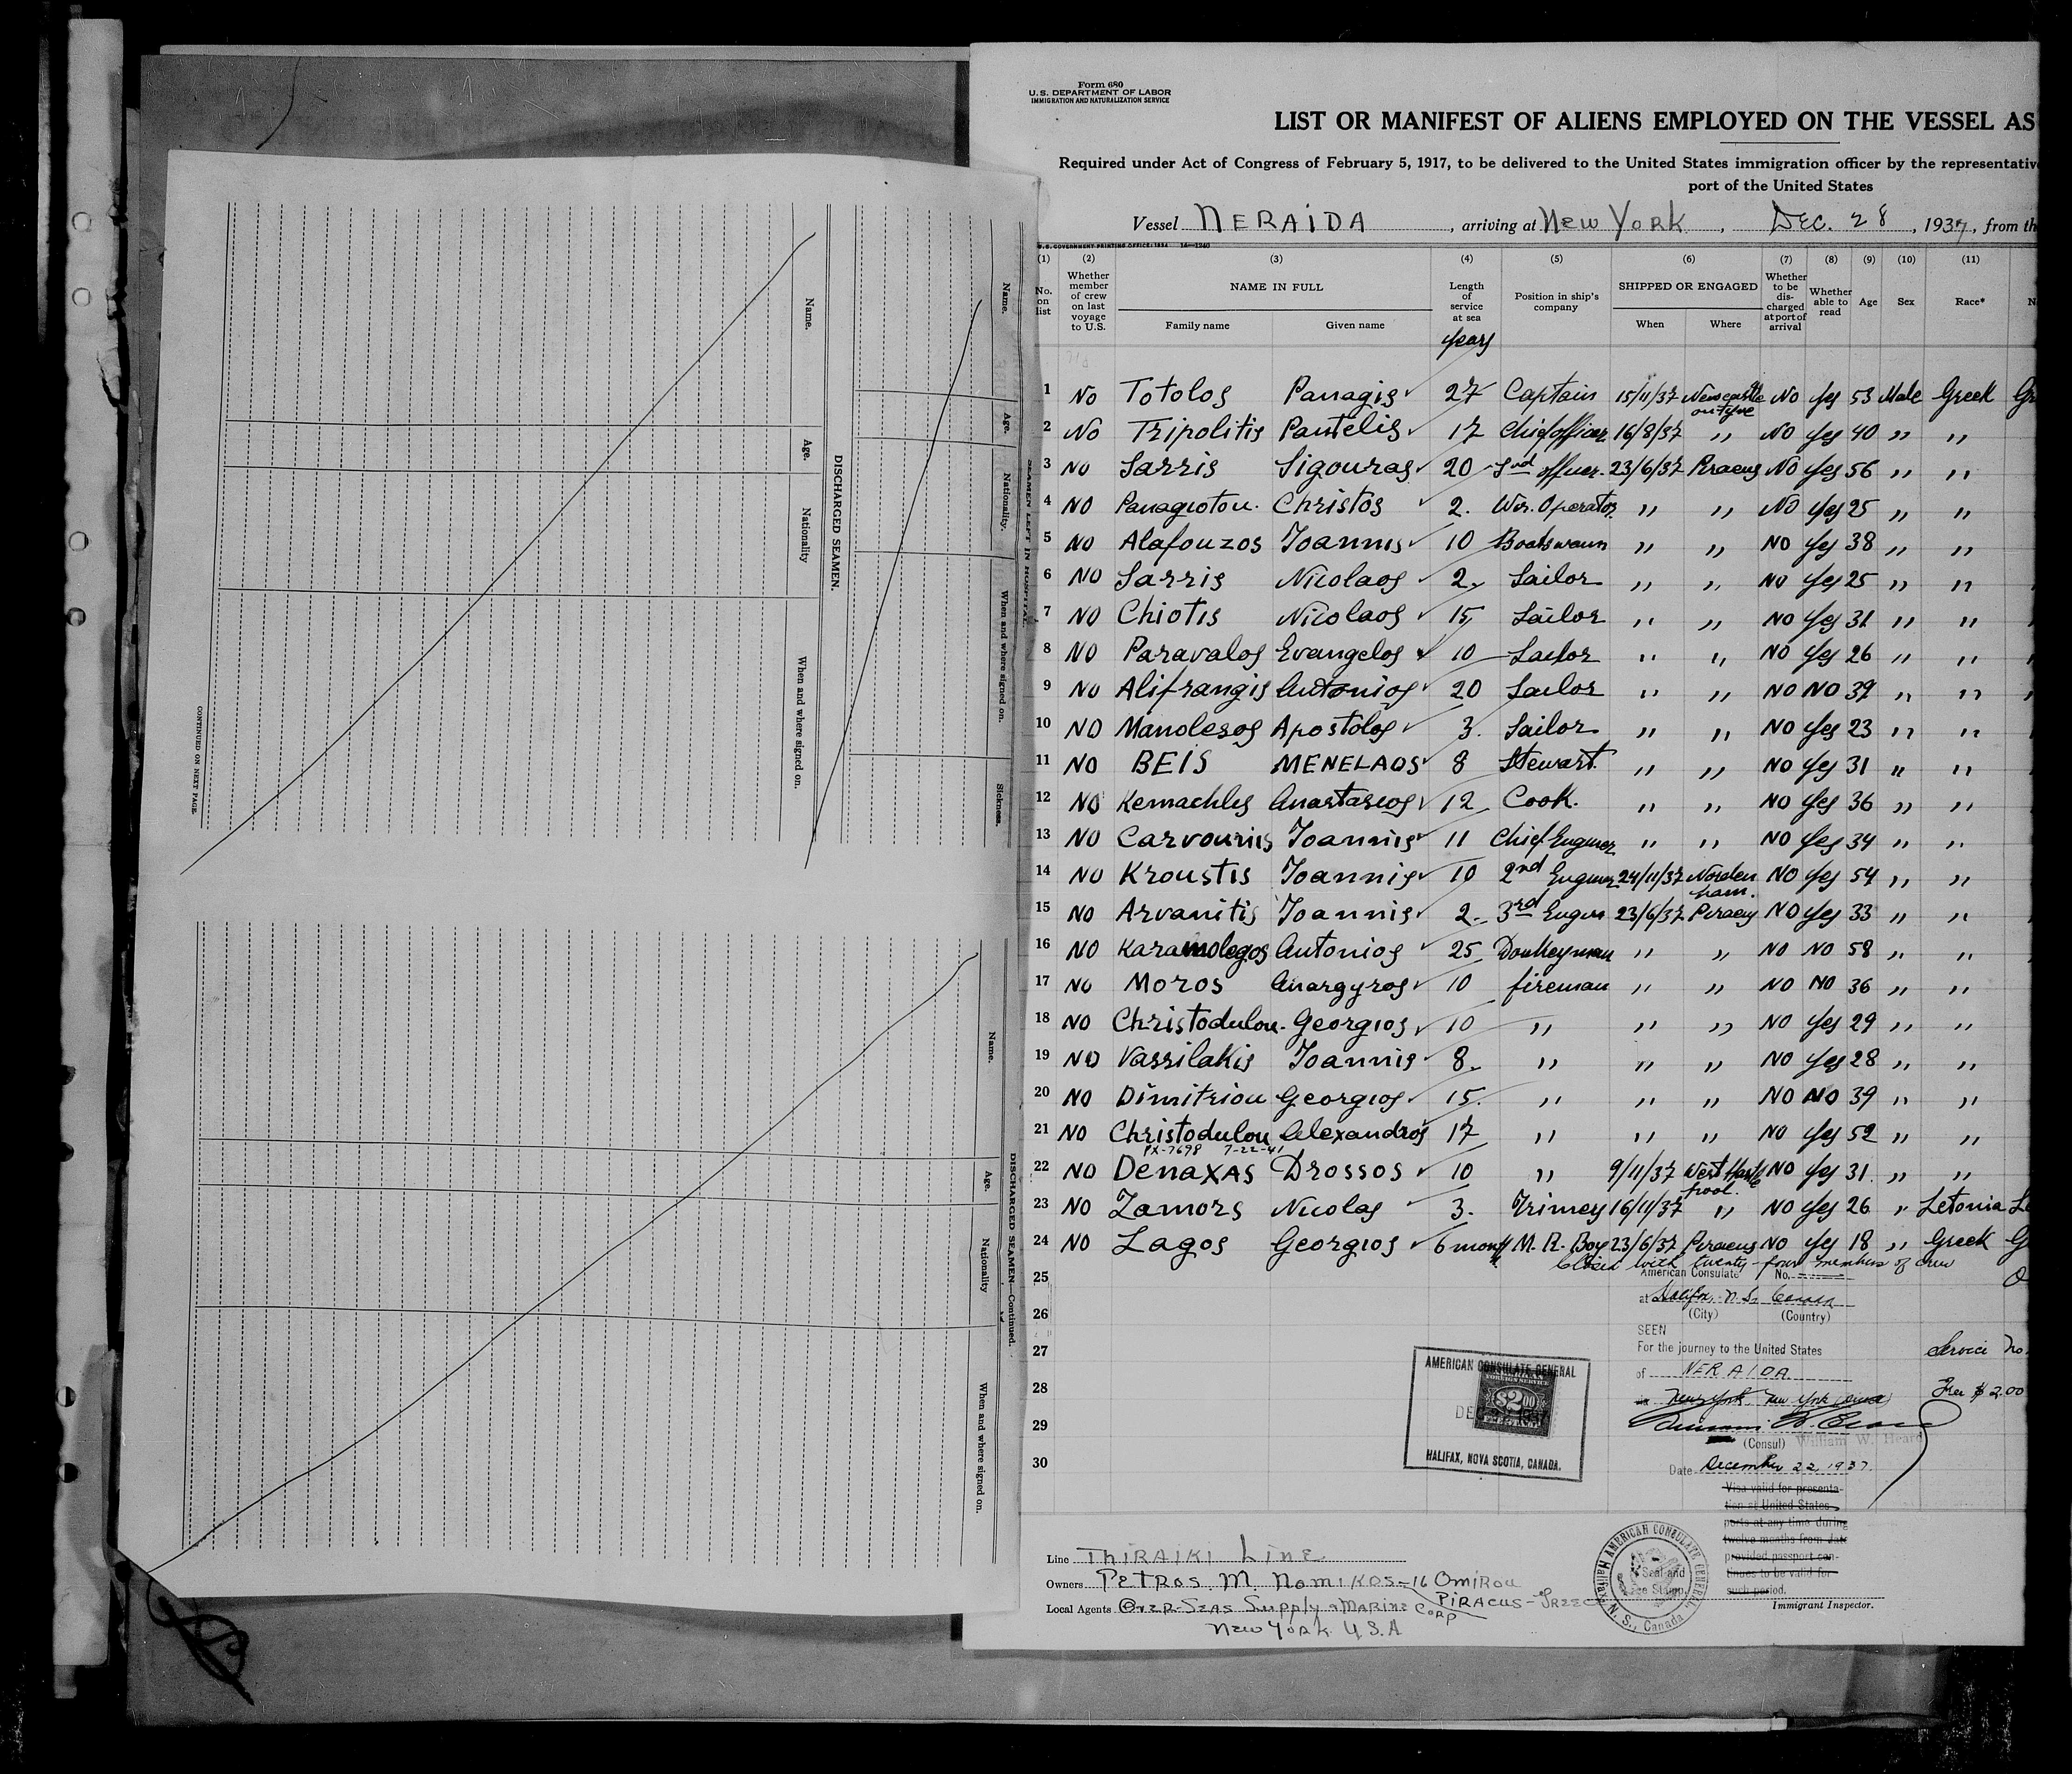 Form 680
U.S. DEPARTMENT OF LABOR
IMMIGRATION AND NATURALIZATION SERVICE
LIST OR MANIFEST OF ALIENS EMPLOYED ON THE VESSEL AS
Required under Act of Congress of February 5, 1917, to be delivered to the United States immigration officer by the representative
port of the United States
Vessel NERAIDA, arriving at New York, Dec. 28, 1937, from th
U.S. GOVERNMENT PRINTING OFFICE: 1934 14—1240
(1) (2) (3) (4) (5) (6) (7) (8) (9) (10) (11)
No. on list Whether member of crew on last voyage to U.S. NAME IN FULL Family name Given name Length of service at sea Position in ship's company SHIPPED OR ENGAGED When Where Whether to be discharged at port of arrival Whether able to read Age Sex Race* N
years
1 No Totolos Panagis 27 Captain 15/11/37 Newcastle on tyne No Yes 53 Male Greek Gr
2 No Tripolitis Pantelis 17 Chief officer 16/8/37 " No Yes 40 " "
3 No Sarris Sigouras 20 2nd officer 23/6/37 Piraeus No Yes 56 " "
4 NO Panagiotou Christos 2. Wir. Operator " " No Yes 25 " "
5 NO Alafouzos Ioannis 10 Boatswain " " NO Yes 38 " "
6 NO Sarris Nicolaos 2. Sailor " " No Yes 25 " "
7 NO Chiotis Nicolaos 15 Sailor " " NO Yes 31 " "
8 NO Paravalos Evangelos 10 Sailor " " NO Yes 26 " "
9 NO Alifrangis Antonios 20 Sailor " " NO NO 39 " "
10 NO Manolesos Apostolos 3. Sailor " " NO Yes 23 " "
11 NO BEIS MENELAOS 8 Stewart " " NO Yes 31 " "
12 NO Kemachlis Anastasios 12 Cook. " " NO Yes 36 " "
13 NO Carvounis Ioannis 11 Chief Engineer " " NO Yes 34 " "
14 NO Kroustis Ioannis 10 2nd Engineer 24/11/37 Nordenham. NO Yes 54 " "
15 NO Arvanitis Ioannis 2. 3rd Engin 23/6/37 Piraeus NO Yes 33 " "
16 NO Karamolegos Antonios 25 Donkeyman " " NO NO 58 " "
17 NO Moros Anargyros 10 fireman " " NO NO 36 " "
18 NO Christodulou Georgios 10 " " " NO Yes 29 " "
19 NO Vassilakis Ioannis 8. " " " NO Yes 28 " "
20 NO Dimitriou Georgios 15. " " " NO NO 39 " "
21 NO Christodulou Alexandros 17 " " " NO Yes 52 " "
PX-7698 7-22-41
22 NO Denaxas Drossos 10 " 9/11/37 West Hartlepool. NO Yes 31 " "
23 NO Zamors Nicolas 3. Trimer 16/11/37 " NO Yes 26 " Letonia Le
24 NO Lagos Georgios 6 month M. R. Boy 23/6/37 Piraeus NO Yes 18 " Greek G
Closed with twenty-four members of crew
25
26
27
28
29
30
American Consulate No.
at Halifax, N.S. Canada
(City) (Country)
SEEN
For the journey to the United States
of NERAIDA
via New York New York
(Consul) William W. Heard
Date December 22, 1937.
Service No.
Fee $2.00
Visa valid for presentation at United States ports at any time during twelve months from date provided passport continues to be valid for such period.
AMERICAN CONSULATE GENERAL
AMERICAN FOREIGN SERVICE
$2.00
HALIFAX, NOVA SCOTIA, CANADA.
AMERICAN CONSULATE GENERAL Halifax, N. S., Canada
Seal and Fee Stamp.
Line Thiraiki Line
Owners Petros M. Nomikos - 16 Omirou
Piraeus - Greece
Local Agents Over-Seas Supply & Marine Corp
New York U.S.A
Immigrant Inspector.
SEAMEN LEFT IN HOSPITAL
Name. Age. Nationality. When and where signed on. Sickness.
DISCHARGED SEAMEN.
Name. Age. Nationality When and where signed on.
CONTINUED ON NEXT PAGE.
DISCHARGED SEAMEN—Continued.
Name. Age. Nationality When and where signed on.